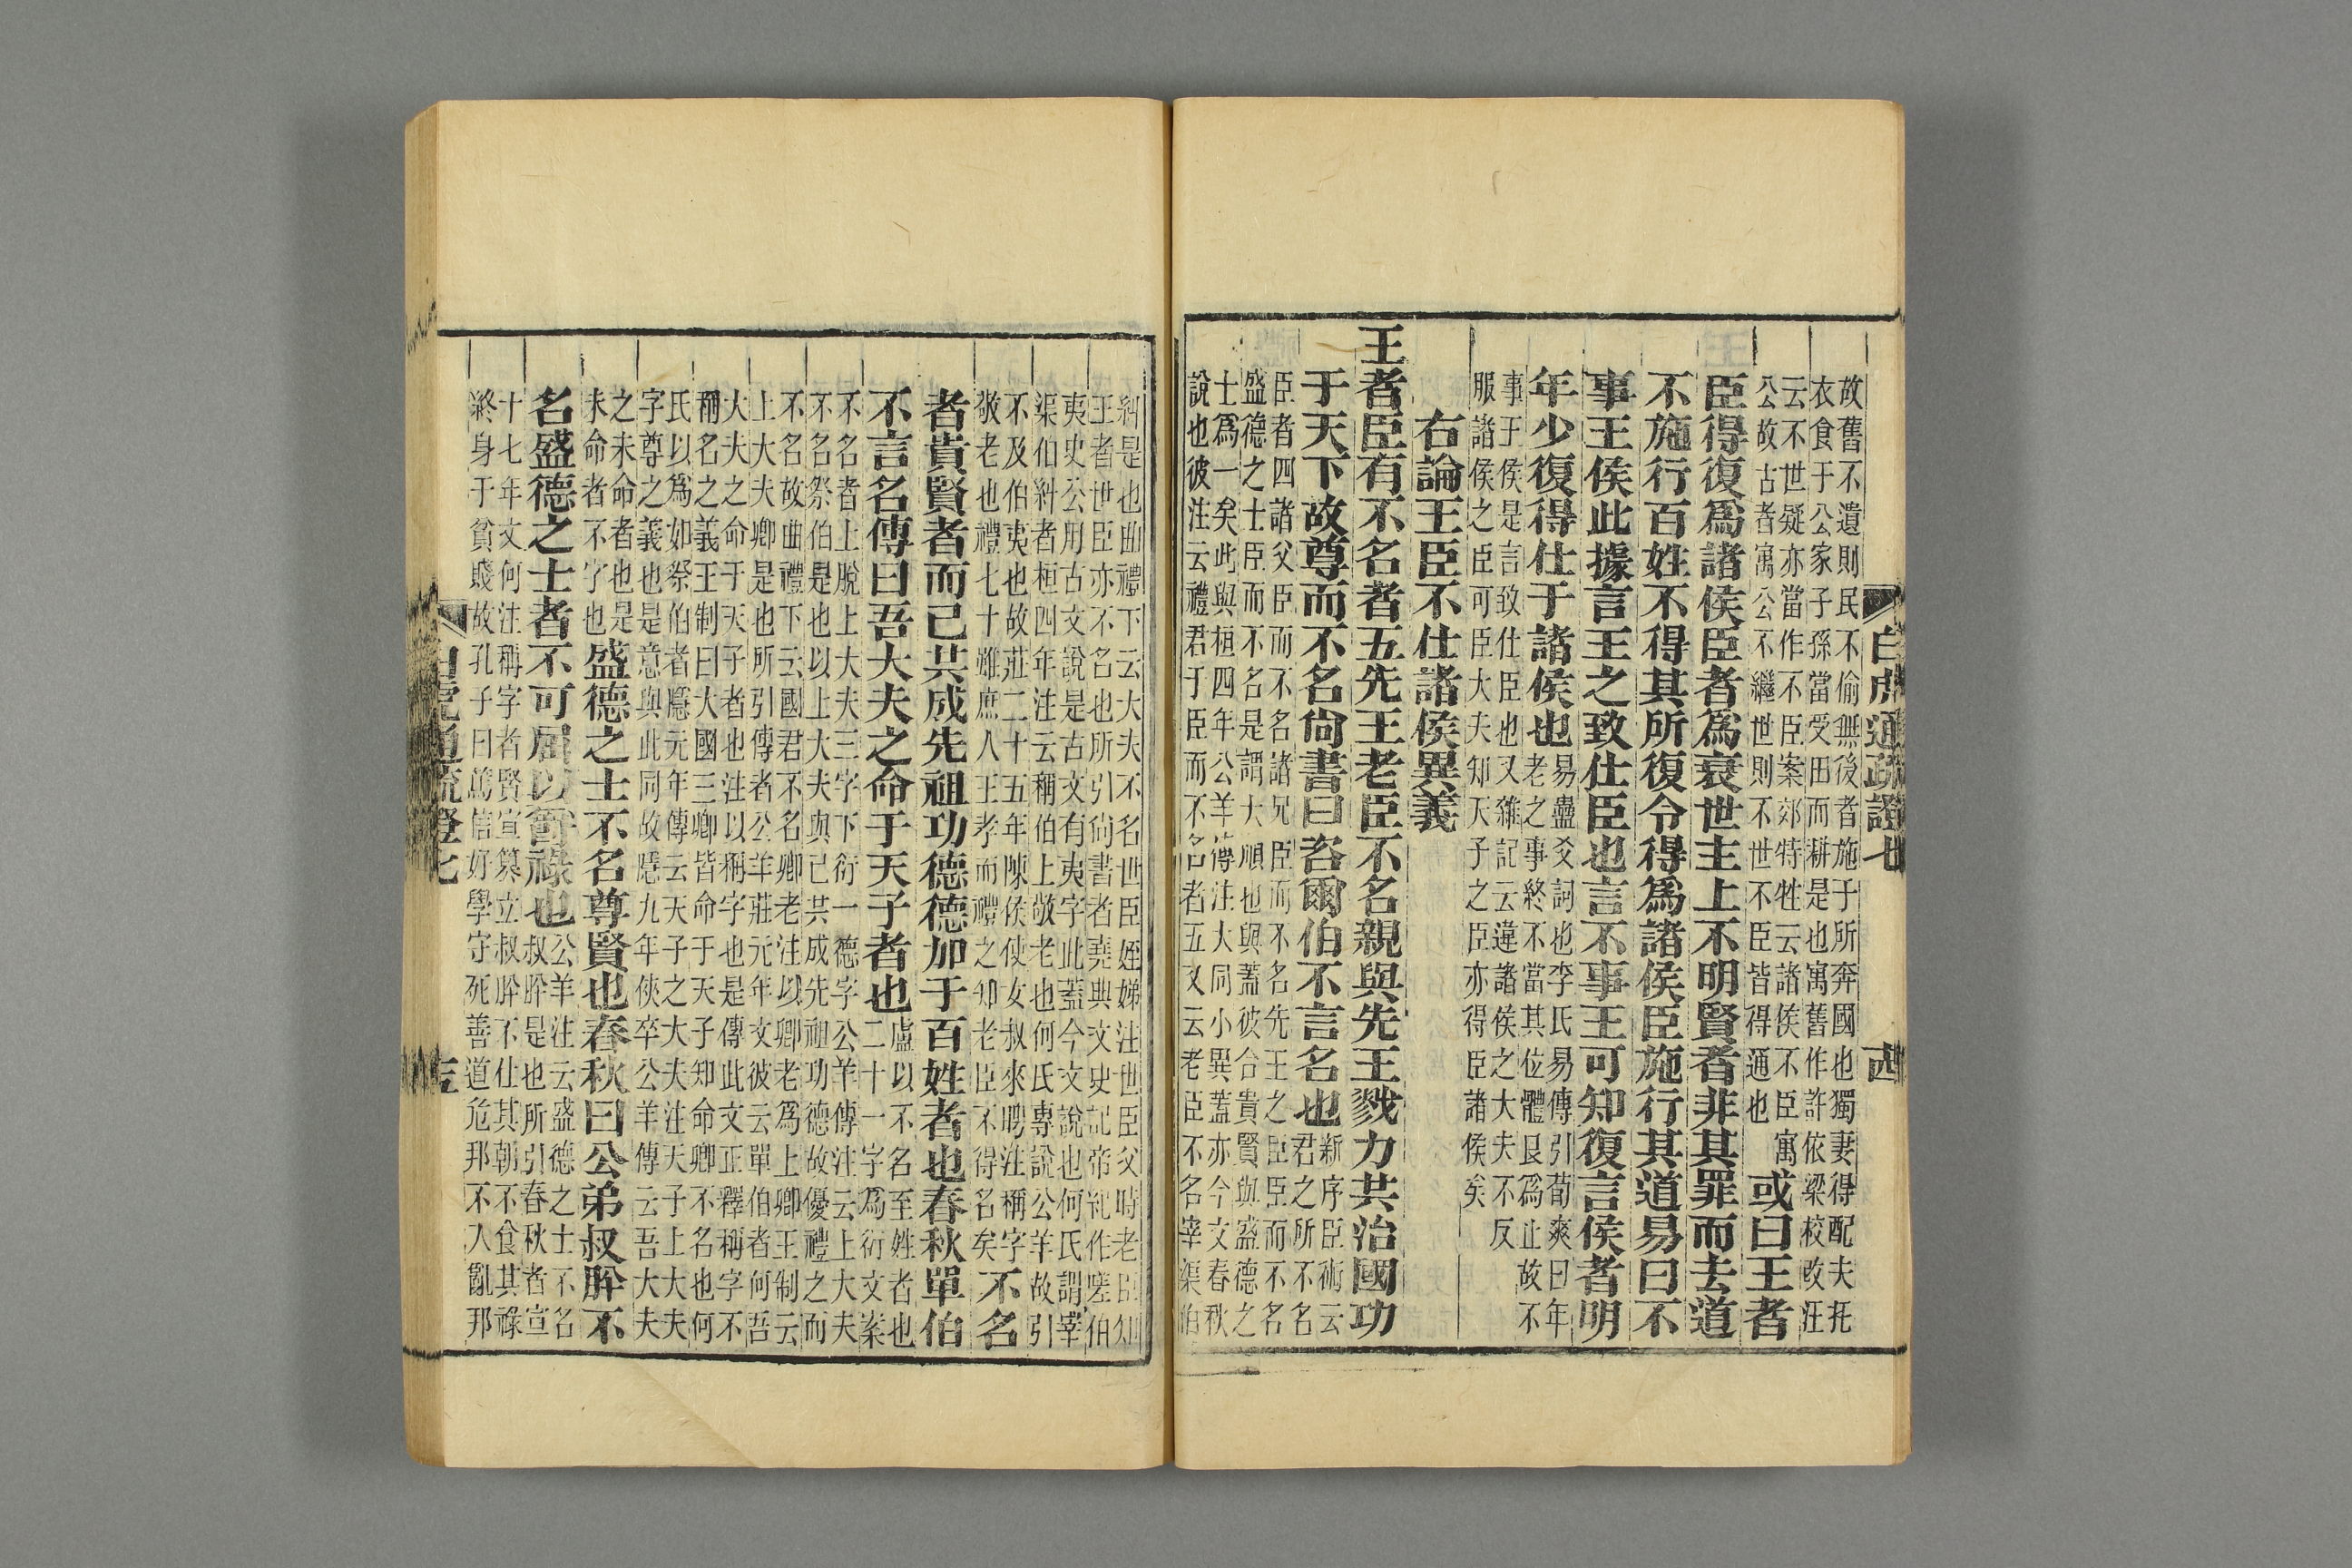 白虎通疏證七
西
故舊不遺則民不偷無後者施于所奔國也獨妻得配夫托
衣食于公家子孫當受田而耕是也寓舊作許依梁校改汪
云不世疑亦當作不臣案郊特牲云諸侯不臣寓
公故古者寓公不繼世則不世不臣皆得通也
或曰王者
臣得復爲諸侯臣者爲衰世主上不明賢者非其罪而去道
不施行百姓不得其所復令得爲諸侯臣施行其道易曰不
事王侯此據言王之致仕臣也言不事王可知復言侯者明
年少復得仕于諸侯也
易蠱爻詞也李氏易傳引荀爽曰年
老之事終不當其位體艮爲止故不
事王侯是言致仕臣也又雜記云違諸侯之大夫不反
服諸侯之臣可臣大夫知天子之臣亦得臣諸侯矣
右論王臣不仕諸侯異義
王者臣有不名者五先王老臣不名親與先王戮力共治國功
于天下故尊而不名尙書曰咨爾伯不言名也
新序臣術云
君之所不名
臣者四諸父臣而不名諸兄臣而不名先王之臣臣而不名
盛德之士臣而不名是謂大順也與蓋彼合貴賢與盛德之
士爲一矣此與桓四年公羊傳注大同小異蓋亦今文春秋
說也彼注云禮君于臣而不名者五又云老臣不名宰渠伯
糾是也曲禮下云大夫不名世臣姪娣注世臣父時老臣知
王者世臣亦不名也所引尙書者堯典文史記帝紀作嗟伯
夷史公用古文說是古文有夷字此蓋今文說也何氏謂宰
渠伯糾者桓四年注云稱伯上敬老也何氏專說公羊故引
不及伯夷也故莊二十五年陳侯使女叔來聘注稱字
敬老也禮七十雖庶人王孝而禮之知老臣不得名矣
不名
者貴賢者而已共成先祖功德德加于百姓者也春秋單伯
不言名傳曰吾大夫之命于天子者也
盧以不名至姓者也
二十一字爲衍文案
不名者上脫上大夫三字下衍一德字公羊傳注云上大夫
不名祭伯是也以上大夫與已共成先祖功德故優禮之而
不名故曲禮下云國君不名卿老注以卿老爲上卿王制云
上大夫卿是也所引傳者公羊莊元年文彼云單伯者何吾
大夫之命于天子者也注以稱字也是傳此文正釋稱字不
稱名之義王制曰大國三卿皆命于天子知命卿不名也何
氏以爲如祭伯者隱元年傳云天子之大夫注天子上大夫
字尊之義也是意與此同故隱九年俠卒公羊傳云吾大夫
之未命者也是
未命者不字也
盛德之士不名尊賢也春秋曰公弟叔肸不
名盛德之士者不可屈以爵祿也
公羊注云盛德之士不名
叔肸是也所引春秋者宣
十七年文何注稱字者賢宣篡立叔肸不仕其朝不食其祿
終身于貧賤故孔子曰篤信好學守死善道危邦不入亂邦
白虎通疏證七